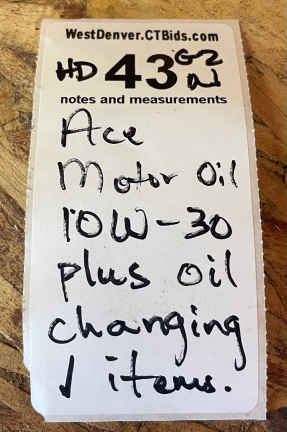 WestDenver.CTBids.com
HD 43 G2
N
notes and measurements
Ace
Motor Oil
10W-30
plus oil
changing
items.